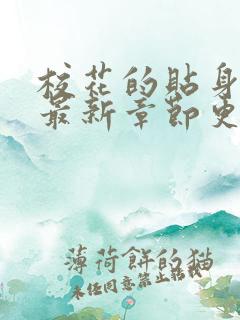 校花的贴身
最新章节史
薄荷餅的猫
未经同意禁止转载